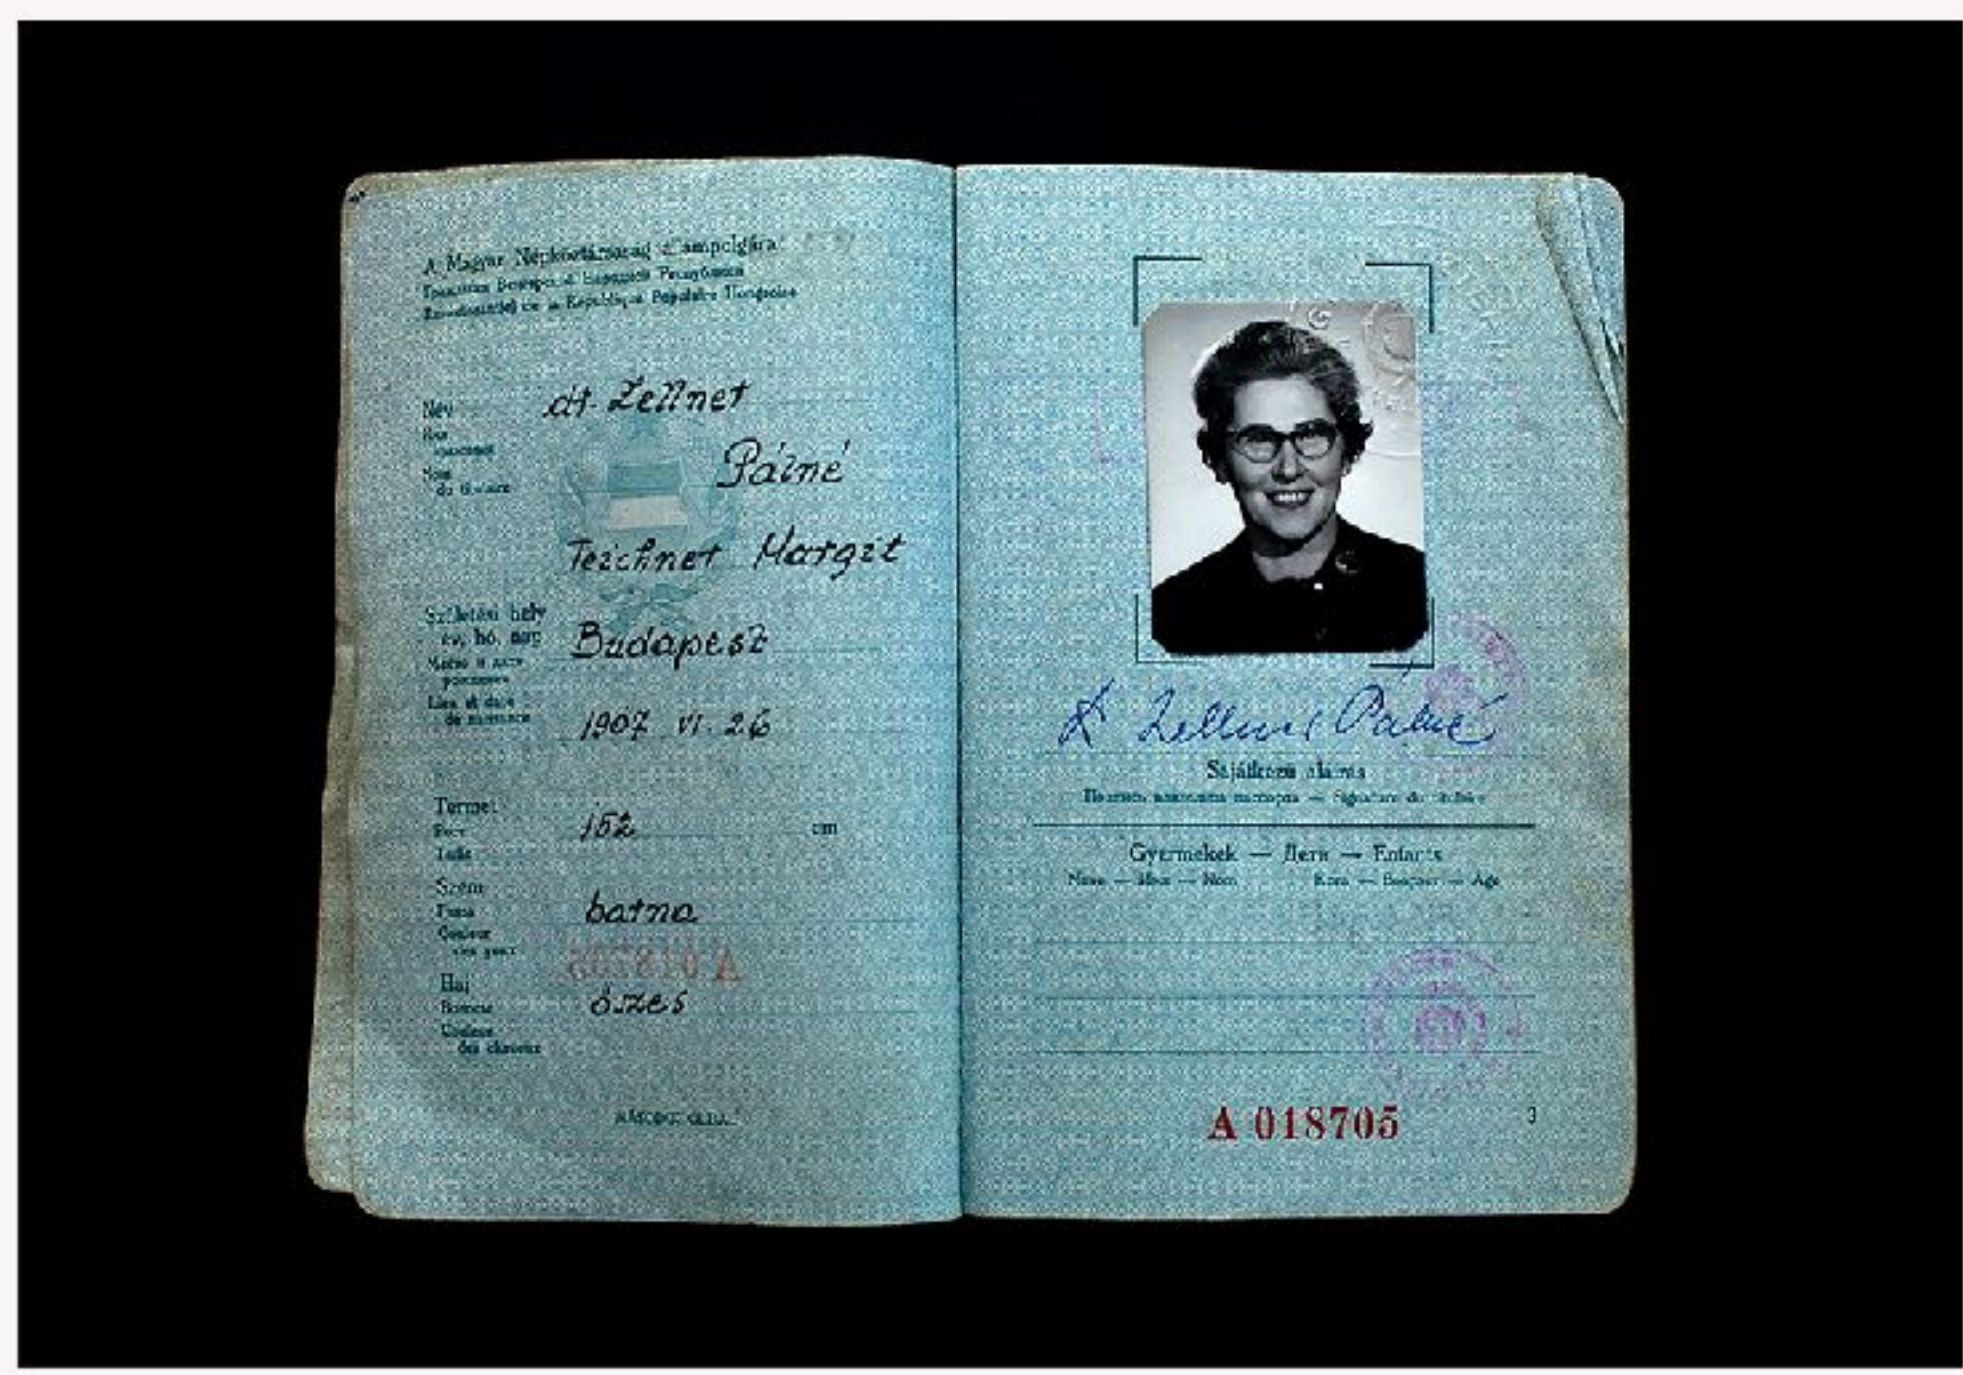 A Magyar Népköztársaság állampolgára
Граждан Венгерской Народной Республики
de la République Populaire Hongroise
Név
Имя
Nom
du titulaire
dr. Zellner
Pálné
Teichner Margit
Születési hely
év, hó, nap
Место и дата
рождения
Lieu et date
de naissance
Budapest
1907 VI. 26
Termet
Рост
Taille
152 cm
Szem
Глаза
Couleur
des yeux
barna
A 018705
Haj
Волосы
Couleur
des cheveux
őszes
Dr Zellner Pálné
Sajátkezű aláírás
Подпись владельца паспорта — Signature du titulaire
Gyermekek — Дети — Enfants
Neve — Имя — Nom
Kora — Возраст — Age
A 018705
3